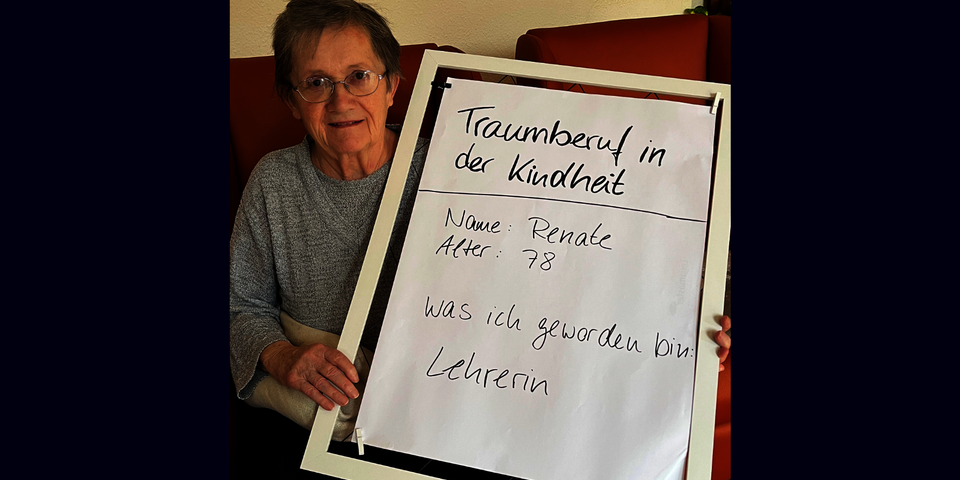 Traumberuf in
der Kindheit
Name: Renate
Alter: 78
Was ich geworden bin:
Lehrerin